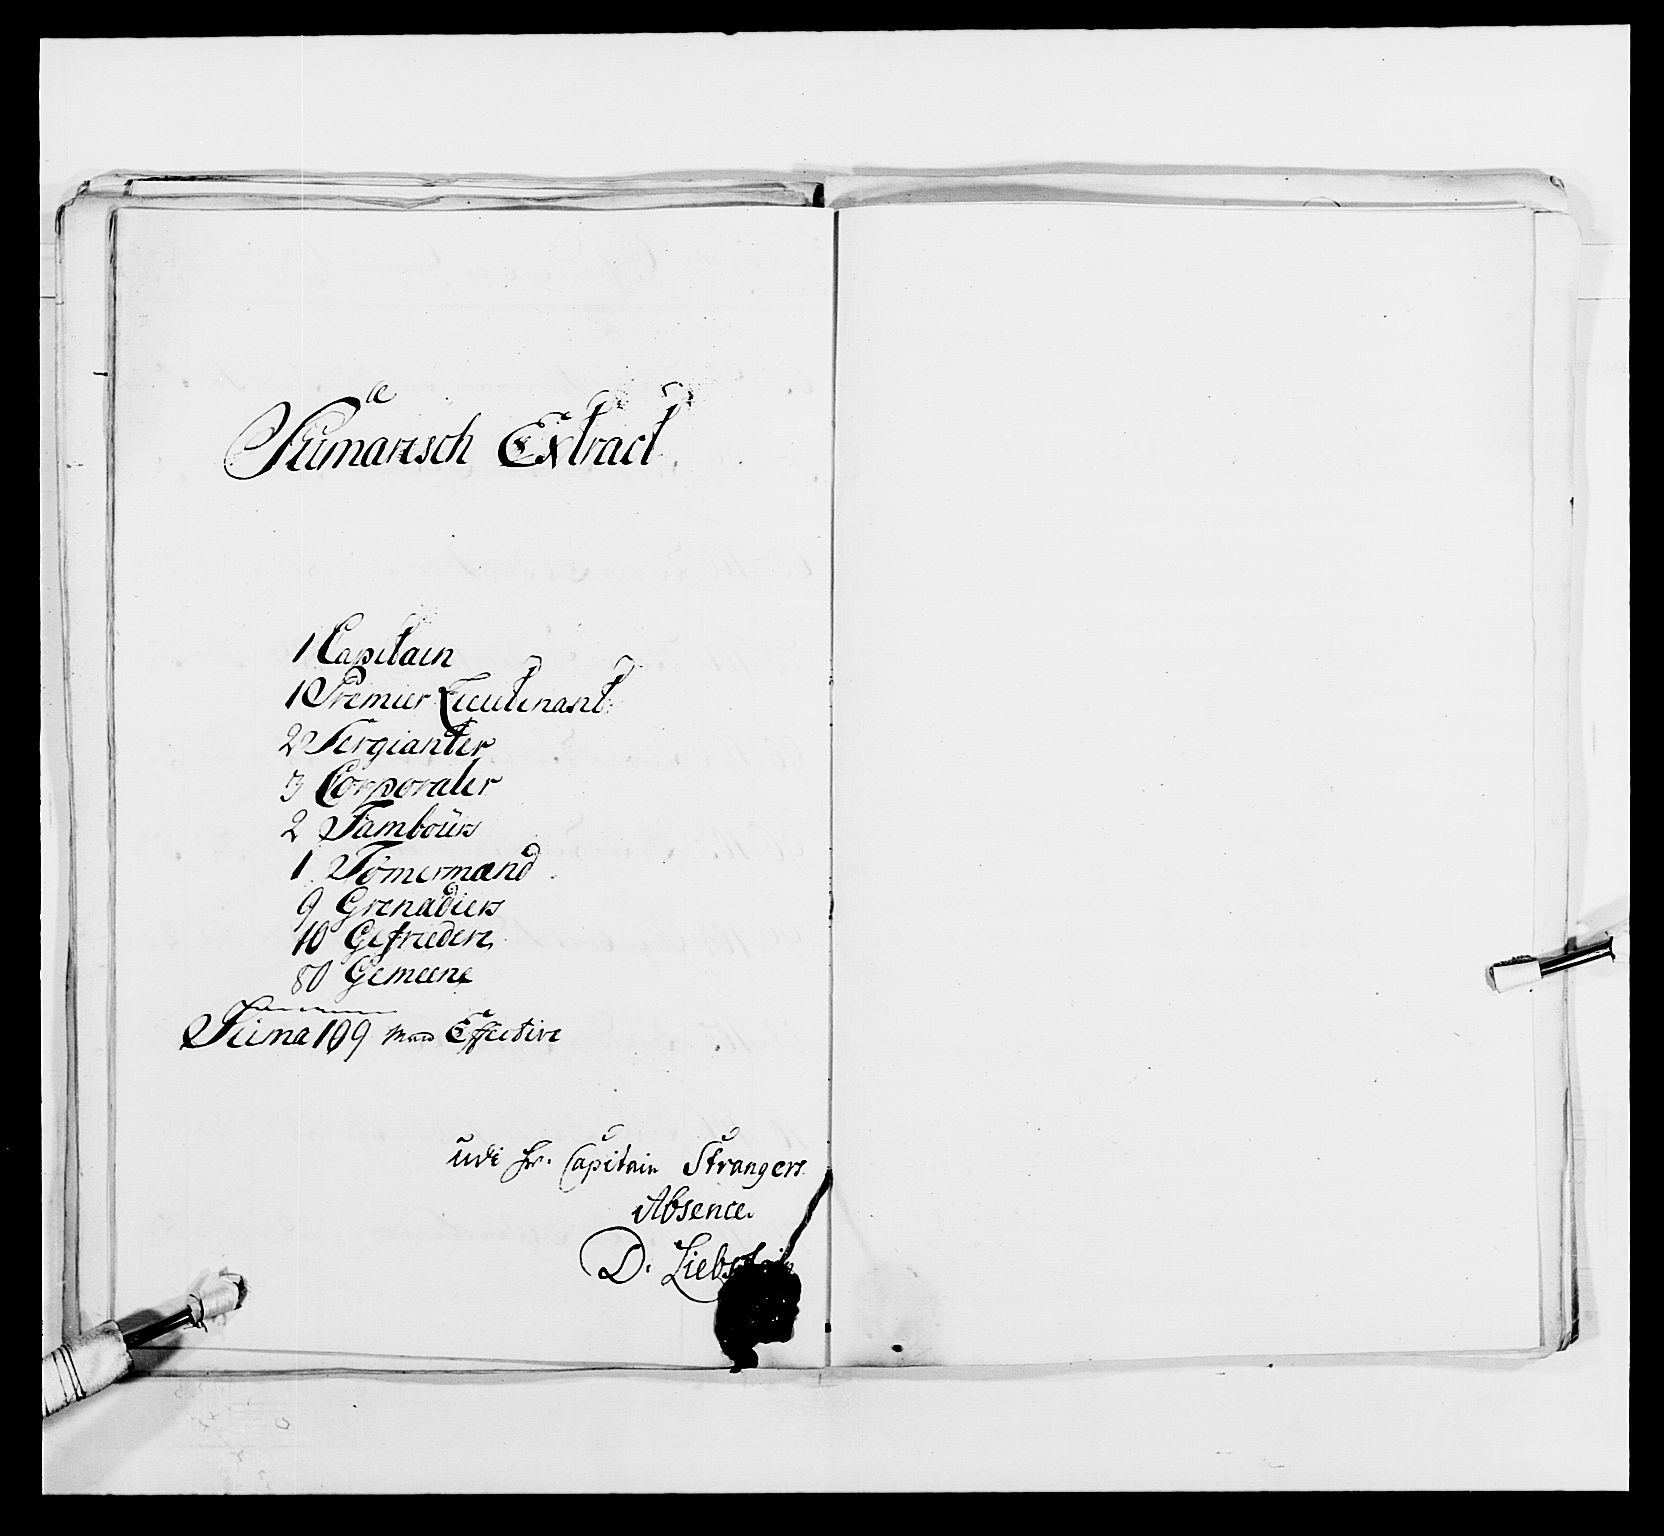 Sumarisch Extract
1 Capitain
1 Premier Lieutenant
2 Sergianter
3 Corporaler
2 Tambours
1 Tømermænd
9 Grenadiers
10 Gefriedere
80 Gemeene
Suma 109 Mand Effective
udi Hr. Capitain Strangers
Absence.
D. Liebstein